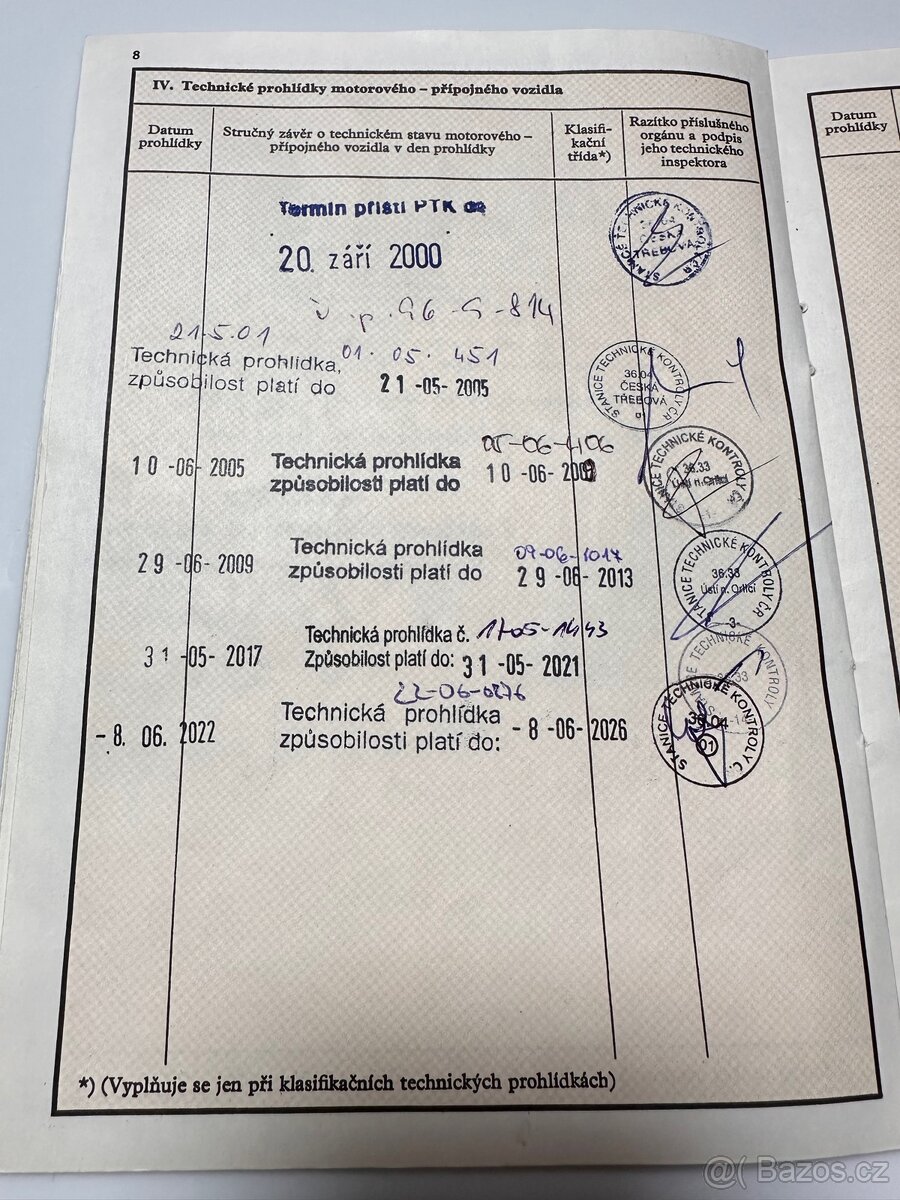 8
IV. Technické prohlídky motorového – přípojného vozidla
Datum prohlídky
Stručný závěr o technickém stavu motorového – přípojného vozidla v den prohlídky
Klasifi-kační třída*)
Razítko příslušného orgánu a podpis jeho technického inspektora
Datum prohlídky
Termín příští PTK do
20. září 2000
STANICE TECHNICKÉ KONTROLY ČR
ČESKÁ
TŘEBOVÁ
č. p. 96-9-814
21.5.01
Technická prohlídka, 01-05-451
způsobilost platí do 21-05-2005
STANICE TECHNICKÉ KONTROLY ČR
36.04
ČESKÁ
TŘEBOVÁ
05-06-406
10-06-2005 Technická prohlídka
způsobilosti platí do 10-06-2009
STANICE TECHNICKÉ KONTROLY ČR
36.33
Ústí n. Orlicí
-1-
29-06-2009 Technická prohlídka 09-06-1017
způsobilosti platí do 29-06-2013
STANICE TECHNICKÉ KONTROLY ČR
36.33
Ústí n. Orlicí
-3-
Technická prohlídka č. 17-05-1443
31-05-2017 Způsobilost platí do: 31-05-2021
TECHNICKÉ KONTROLY
22-06-0276
-8. 06. 2022 Technická prohlídka
způsobilosti platí do: -8-06-2026
STANICE TECHNICKÉ KONTROLY Č.
36.04
01
*) (Vyplňuje se jen při klasifikačních technických prohlídkách)
@( Bazos.cz